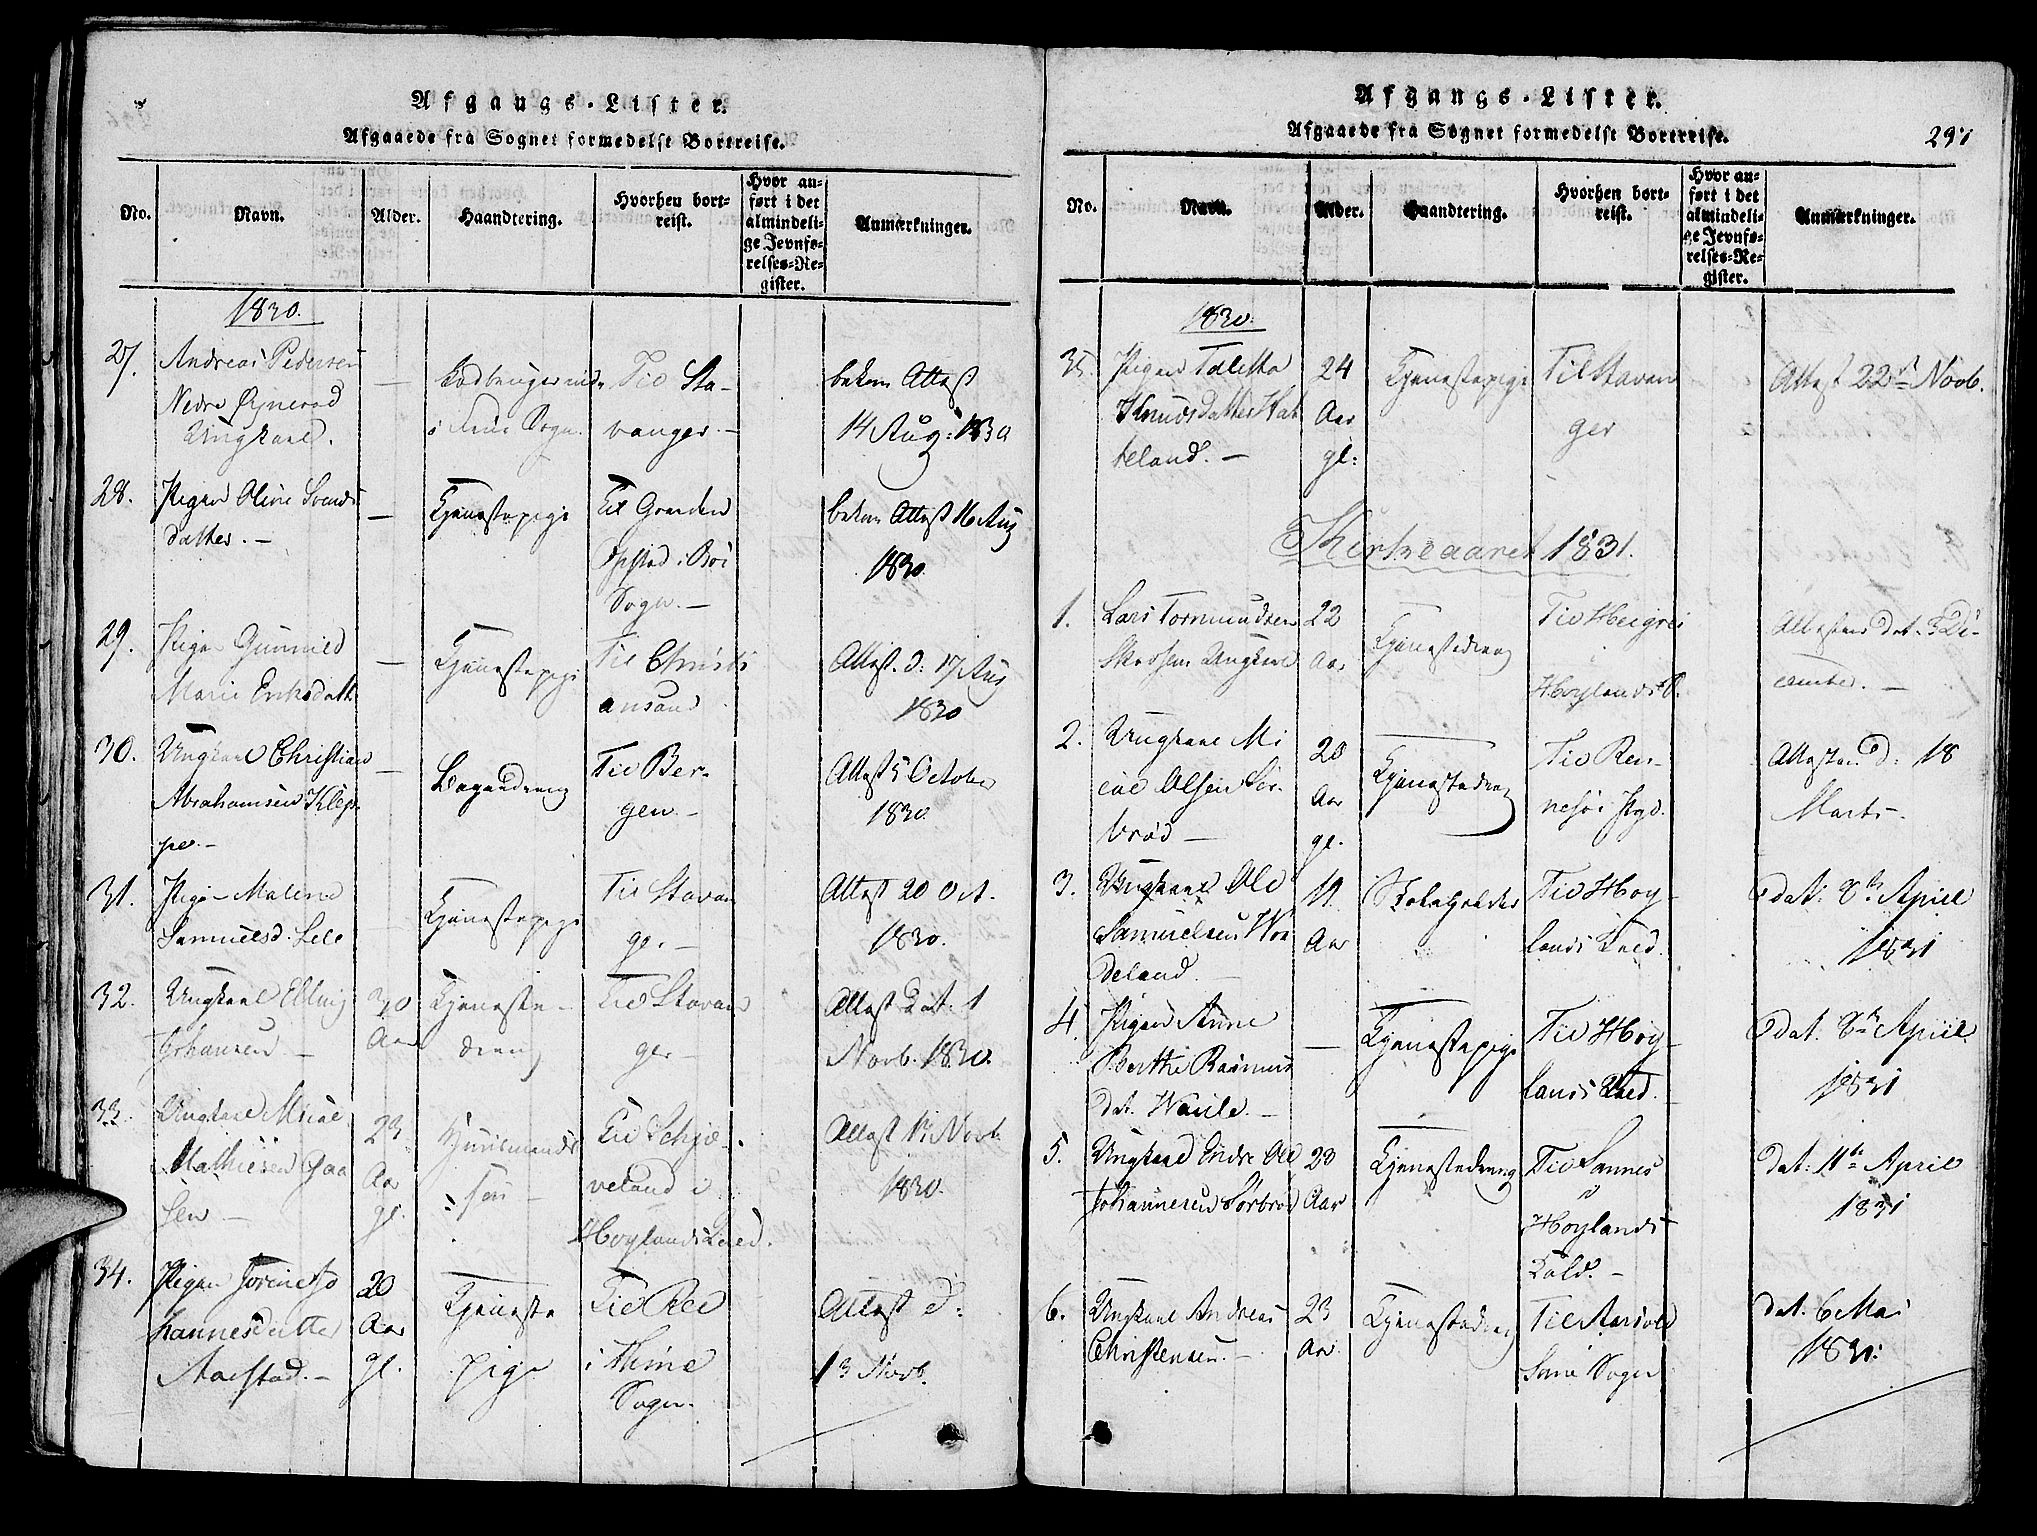 Afgangs-Lister.
Afgaaede fra Sognet formedelst Bortreise.
No.
Navn.
Alder.
Haandtering.
Hvorhen bort-
reist.
Hvor an-
ført i det
almindeli-
ge Jevnfø-
relses-Re-
gister.
Anmærkninger.
1830.
27.
Andreas Pedersen
Nedre
Ungkarl.
—
Til Sta-
vanger. —
bekom Attest
14 Aug: 1830
28.
Pigen Olene Svends
datter. —
—
Tjenestepige
Til Gaarden
Opstad i
Sogn. —
bekom Attest 16 Aug
1830.
29.
Pigen Gunnild
Marie Eriksdatt.
—
Tjenestepige
Til Christi
ansand
Attest. d: 17 Aug
1830
30.
Ungkarl Christian
Abrahamsen Klep-
pe. —
—
Bagerdreng
Til Ber-
gen. —
Attest 5 October
1830.
31.
Pige Malene
Samuelsd. Lele
—
Tjenestepige
Til Stavan
ger. —
Attest 20 Oct.
1830.
32.
Ungkarl Elling
Johansen —
30
Aar
Tjeneste-
dreng
Til Stavan
ger
Attest Dat. 1
Novb. 1830.
33.
Ungkarl
Mathiesen Gaa
sen —
23
Aar
gl.
Huusmands
søn —
Til Schiæ-
veland i
Hoylands Gield.
Attest Novb.
1830.
34.
Pigen Serine Jo
hannesdatter
Aarstad. —
20
Aar
gl.
Tjeneste
pige
Til Ree
i Thime
Sogn.
Attest d:
13 Novb.
Afgangs-Lister.
Afgaaede fra Sognet formedelst Bortreise.
291
No.
Navn.
Alder.
Haandtering.
Hvorhen bort-
reist.
Hvor an-
ført i det
almindeli-
ge Jevnfø-
relses-Re-
gister.
Anmærkninger.
1830.
35.
Pigen Taletta
Knudsdatter Hat
teland. —
24
Aar
gl:
Tjenestepige
Til Stavan
ger
Attest 22de Novb.
Kirkeaaret 1831.
1.
Lars Tormundsen
Ungkarl
22
Aar
Tjenestedreng
Til Heigre
i
Hoylands P.
Attesten Dat. 3 De-
cember. —
2.
Ungkarl Mi
cal Olsen Sør-
brød —
20
Aar
gl.
Tjenestedreng
Til Ren-
nesøe Pgd.
Attesten D: 18
Marts —
3.
Ungkarl Ole
Samuelsen
deland —
19
Aar
Skoleholder
Til Hoy-
lands Gield.
dat: 8de April
1831
4.
Pigen Anne
Berthe Rasmus
dat. —
—
Tjenestepige
Til Hoy-
lands Gield. —
dat. 8de April
1831
5.
Ungkarl Endre Ole
Johannesen Sørbrød
23
Aar
Tjenestedreng
Til Sannes
i
Hoylands
Gield. —
dat: 11te April
1831
6.
Ungkarl Andreas
Christensen. —
23
Aar
Tjenestedreng
Til Aarsvold
Sogn
dat. 6 Mai
1831.